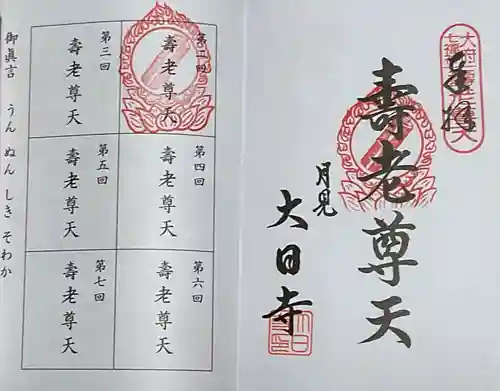 奉拝
壽老尊天
月見
大日寺
第二回
壽老尊天
第三回
壽老尊天
第四回
壽老尊天
第五回
壽老尊天
第六回
壽老尊天
第七回
壽老尊天
御眞言 うん ぬん しき そわか